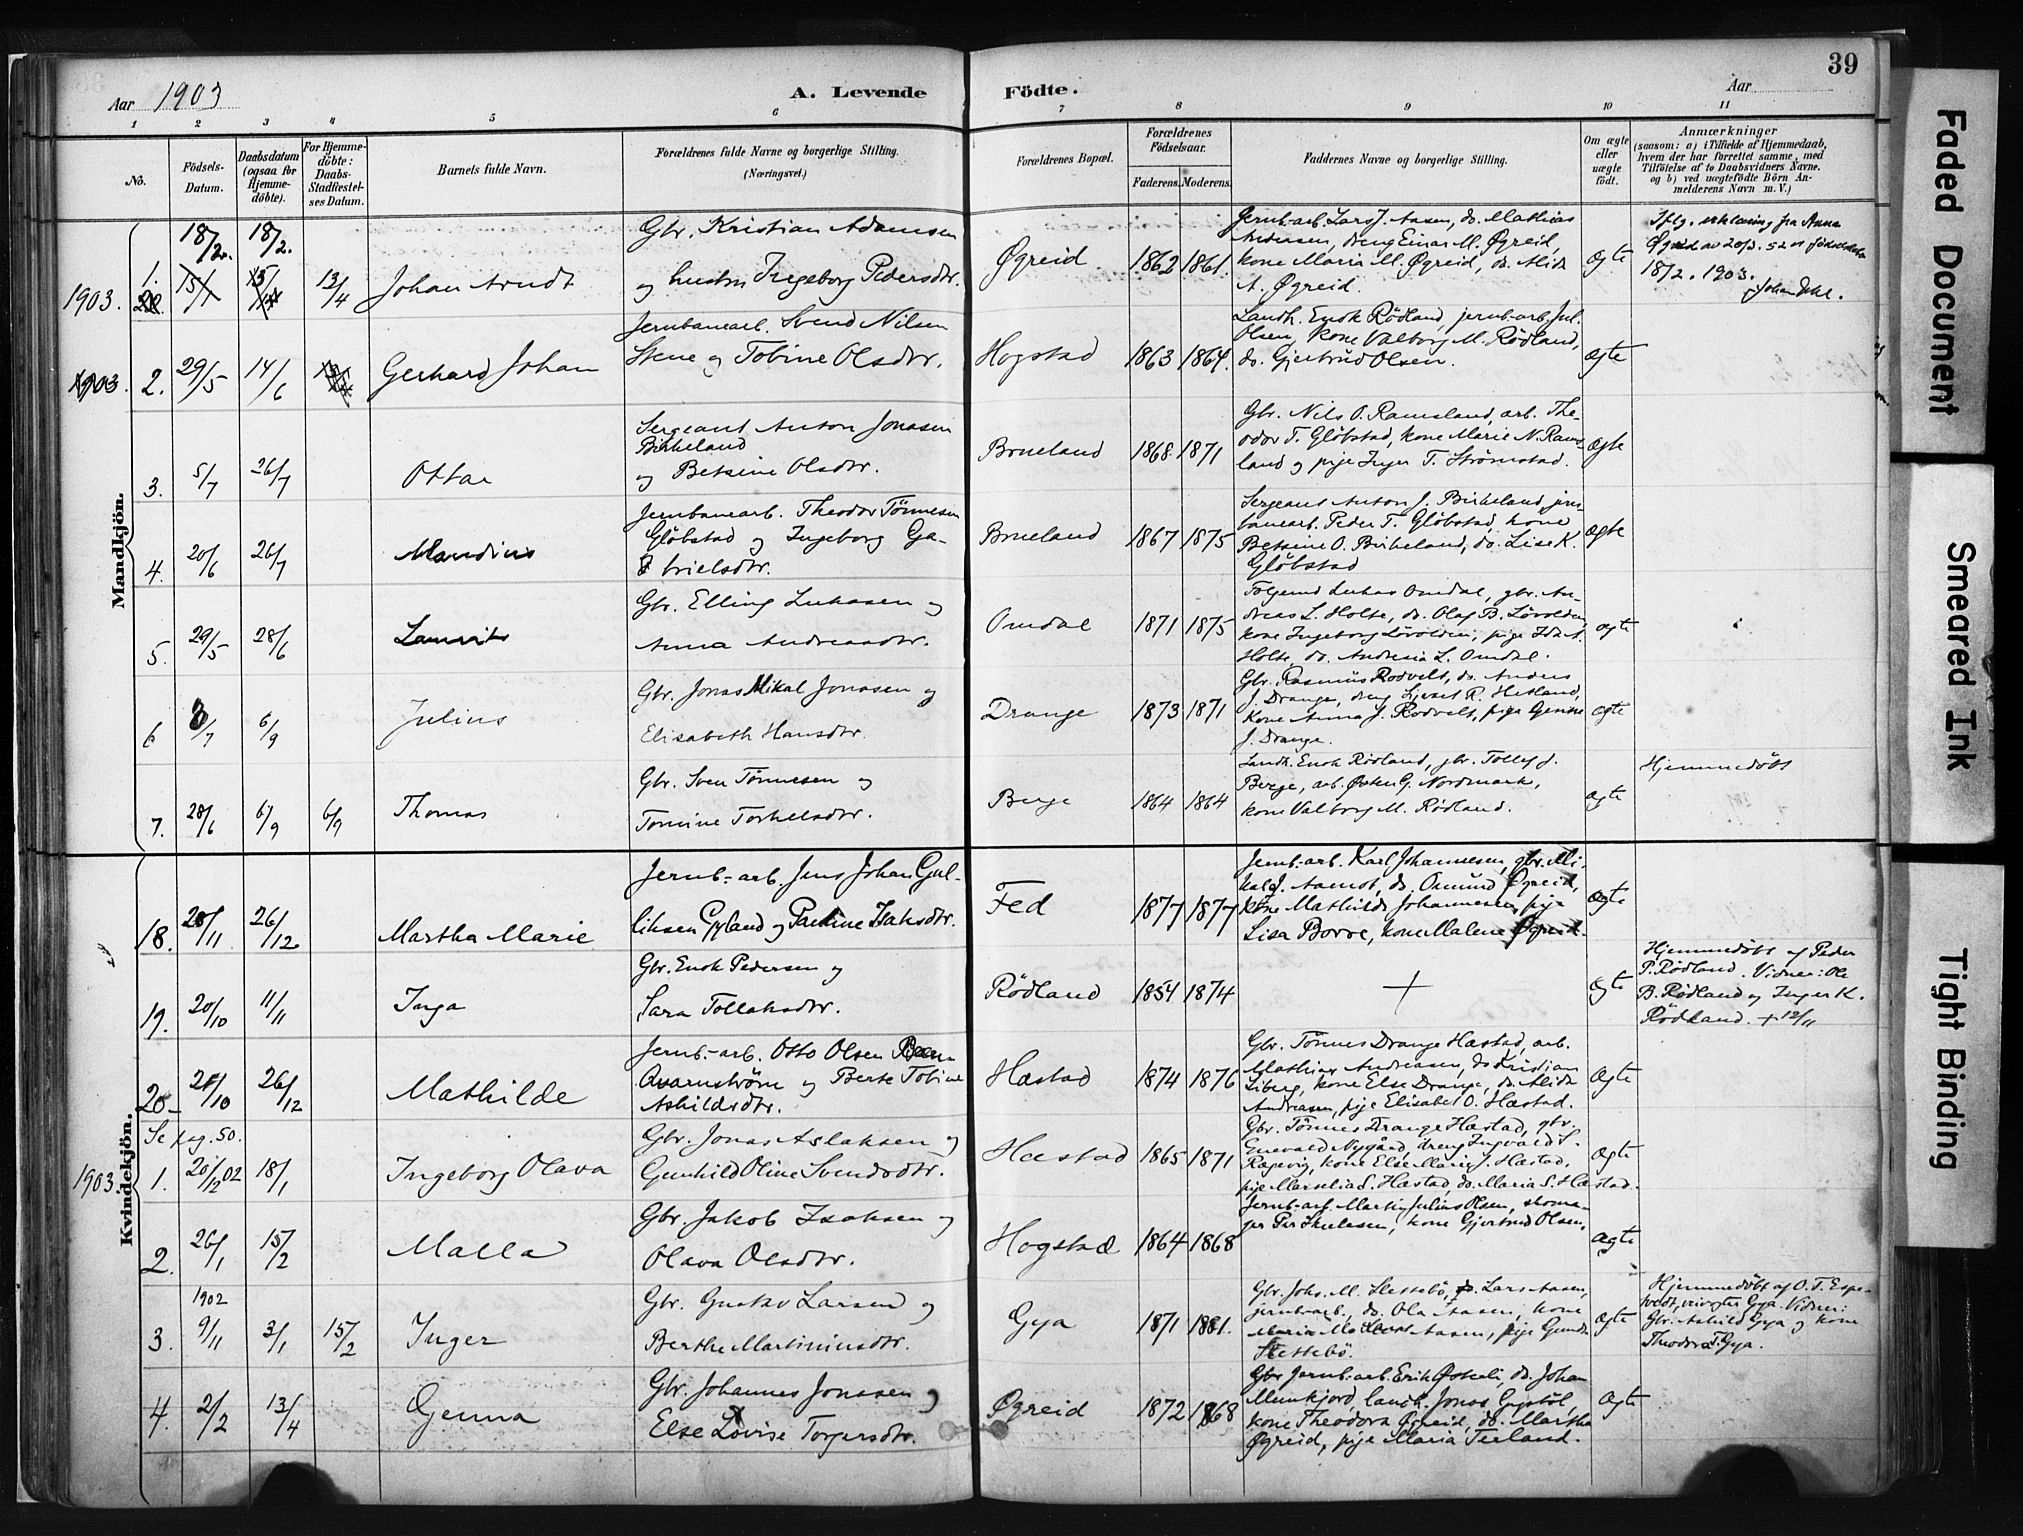 39
Aar 1903
A. Levende
Födte.
Aar
1 2 3 4 5 6 7 8 9 10 11
No.
Födsels-
Datum.
Daabsdatum
(ogsaa for
Hjemme-
döbte).
For Hjemme-
döbte:
Daabs-
Stadfæstel-
ses Datum.
Barnets fulde Navn.
Forældrenes fulde Navne og borgerlige Stilling.
(Næringsvei.)
Forældrenes Bopæl.
Forældrenes
Födselsaar.
Faderens. Moderens.
Faddernes Navne og borgerlige Stilling.
Om ægte
eller
uægte
födt.
Anmærkninger
(saasom: a) i Tilfælde af Hjemmedaab,
hvem der har forrettet samme, med
Tilföielse af to Daabsvidners Navne.
og b) ved uægtefödte Börn An-
melderens Navn m. V.)
Mandkjön.
1903. 1. 18/2. 18/2. 13/4
Johan Arndt
Gbr. Kristian Adamsen
og hustru Ingeborg Pedersdtr.
Øgreid 1862 1861.
Jernb.-arb. Lars J. Aasen, do. Mathias
Andreasen, dreng Einar M. Øgreid,
kone Maria M. Øgreid, do. Alida
A. Øgreid.
ægte
Iflg. erklæring fra Anna
Øgreid av 20/3. 52 er fødselsdato
18/2. 1903.
1903. 2. 29/5 14/6
Gerhard Johan
Jernbanearb. Svend Nilsen
Stene og Tobine Olsdtr.
Hogstad 1863 1864.
Landh. Enok Rødland, jernb.-arb. Jul.
Olsen, kone Valborg M. Rødland,
do. Gjertrud Olsen.
ægte
3. 5/7 26/7
Ottar
Sergeant Anton Jonasen
Birkeland
og Betsine Olsdtr.
Brueland 1868 1871
Gbr. Nils O. Ramsland, arb. The-
odor T. Gløbstad, kone Marie N. Rams-
land og pige Inger T. Strømstad.
ægte
4. 20/6 26/7
Mandius
Jernbanearb. Theodor Tønnesen
Gløbstad og Ingeborg Ga-
brielsdtr.
Brueland 1867 1875
Sergeant Anton J. Birkeland, jern-
banearb. Peder T. Gløbstad, kone
Betsine O. Birkeland, do. Lise K.
Gløbstad
ægte
5. 29/5 28/6
Laurits
Gbr. Elling Lukasen og
Anna Andreasdtr.
Omdal 1871 1875
Følgemd Lukas Omdal, gbr. An-
dreas L. Holte, do. Olaf B. Løvolden,
kone Ingeborg Løvolden, pige Ida A.
Holte, do. Andrea L. Omdal.
ægte
6 3/7 6/9
Julius
Gbr. Jonas Mikal Jonasen og
Elisabeth Hansdtr.
Drange 1873 1871
Gbr. Rasmus Rodvelt, do. Anders
J. Drange, dreng Sjevat R. Hetland,
kone Anna J. Rodvelt, pige Gemine
J. Drange.
ægte
7. 28/6 6/9 6/9
Thomas
Gbr. Sven Tønnesen og
Tomine Torkelsdtr.
Berge 1864 1864
Landh. Enok Rødland, gbr. Tollef J.
Berge, arb. Østen G. Nordmark,
kone Valborg M. Rødland.
ægte
Hjemmedøbt
Kvindekjön.
18. 28/11 26/12
Martha Marie
Jernb.-arb. Jens Johan Gul-
liksen Gyland og Pauline Isaksdtr.
Fed 1877 1877
Jernb.-arb. Karl Johannesen, gbr. Mi-
kal J. Aamot, do. Osmund Øgreid,
kone Mathilde Johannesen, pige
Lisa Borve, kone Malene Øgreid.
ægte
19. 20/10 11/11
Inga
Gbr. Enok Pedersen og
Sara Tollaksdtr.
Rødland 1854 1874
+
ægte
Hjemmedøbt af Peder
P. Rødland. Vidner: Ole
B. Rødland og Inger K.
Rødland. + 12/11
20 21/10 26/12
Mathilde
Jernb.-arb. Otto Olsen
Qvarnstrøm og Berte Tobine
Askildsdtr.
Hæstad 1874 1876
Gbr. Tønnes Drange Hæstad, arb.
Mathias Andreasen, do Kristian
Liberg, kone Else Drange, do. Alida
Andreasen, pige Elisabet O. Hæstad.
ægte
Se pag. 50.
1903. 1. 20/12 02 18/1
Ingeborg Olava
Gbr. Jonas Aslaksen og
Gunhild Oline Svendsdtr.
Hæstad 1865 1871
Gbr. Tønnes Drange Hæstad, gbr.
Enevald Nygård, dreng Ingvald S.
Rægevig, kone Else Marie J. Hæstad,
pige Marselia S. Hæstad, do. Maria S. Hæstad.
ægte
2. 26/1 15/2
Malla
Gbr. Jakob Isaksen og
Olava Olsdtr.
Hogstad 1864 1868
Jernb.-arb. Martin Julius Olsen, skoma-
ger Per Skulesen, kone Gjertrud Olsen.
ægte
1902
3. 9/11 3/1 15/2
Inger
Gbr. Gustav Larsen og
Berthe Martiniusdtr.
Gya 1871 1881.
Gbr. Johs. M. Slettebö, Lars Aasen,
jernb-arb., do. Ola Aasen, kone
Maria Aasen, pige Gunda
Slettebö.
ægte
Hjemmedøbt af O. T. Espe-
tvedt, veivogter Gya. Vidner:
Gbr. Askild Gya og kone
Theodora T. Gya.
4. 2/2 13/4
Gjenna
Gbr. Johannes Jonasen og
Else Lovise Torgersdtr.
Øgreid 1872 1868
Jernb.-arb. Erik Øskeli, do. Johan
Munkjord, landh. Jonas Gystøl,
kone Theodora Øgreid, do. Martha
Øgreid, pige Maria Terland.
ægte
Faded Document
Smeared Ink
Tight Binding